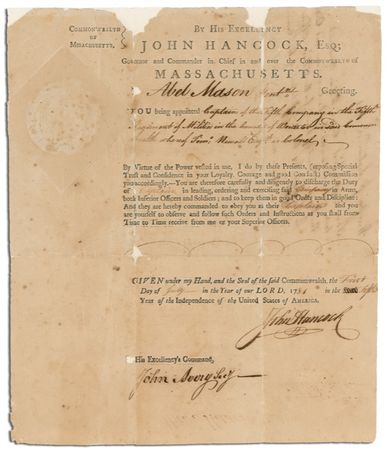 COMMONWEALTH OF
MASSACHUSETTS.
BY HIS EXCELLENCY
JOHN HANCOCK, ESQ;
Governor and Commander in Chief in and over the COMMONWEALTH OF
MASSACHUSETTS.
To Abel Mason Gentn. Greeting.
YOU being appointed Captain of the Fifth Company in the Fifth
Regiment of Militia in the County of Worcester in said Common
wealth whereof Timo. Newell Esqr. is Colonel,
By Virtue of the Power vested in me, I do by these Presents, (reposing special
Trust and Confidence in your Loyalty, Courage and good Conduct) Commission
you accordingly.—You are therefore carefully and diligently to discharge the Duty
of Captain in leading, ordering and exercising said Company in Arms,
both Inferior Officers and Soldiers; and to keep them in good Order and Discipline:
And they are hereby commanded to obey you as their Captain and you
are yourself to observe and follow such Orders and Instructions as you shall from
Time to Time receive from me or your Superior Officers.
GIVEN under my Hand, and the Seal of the said Commonwealth, the First
Day of July in the Year of our LORD, 1781 in the Fifth
Year of the Independence of the United States of America.
John Hancock
His Excellency's Command,
John Avery Secy